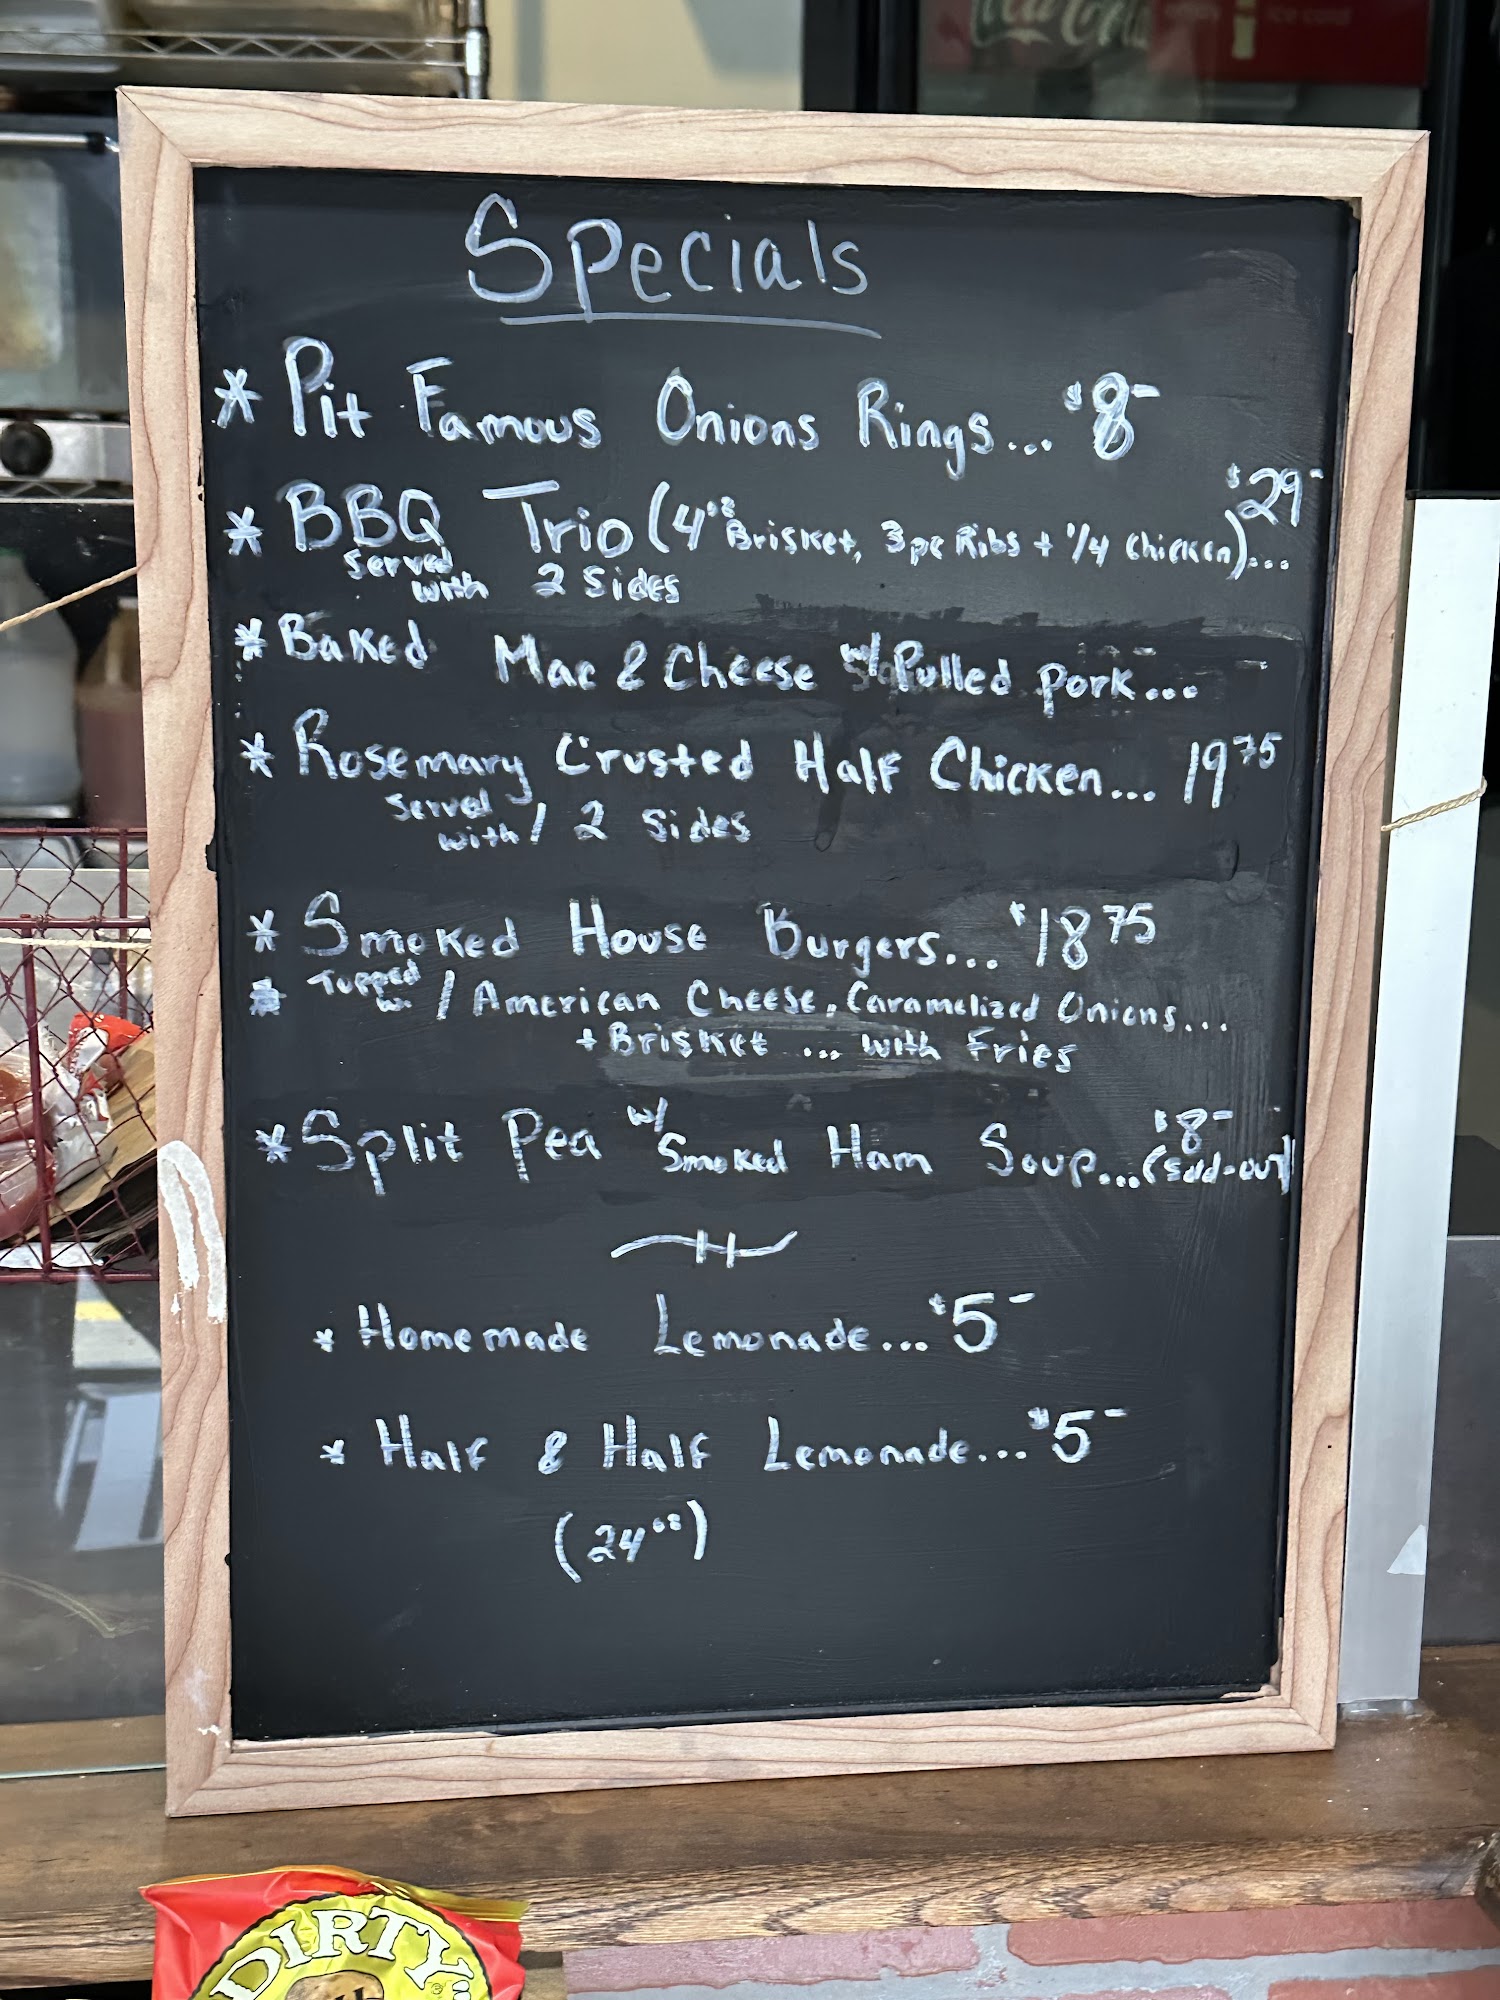 Coca-Cola
ice cold
Specials
* Pit Famous Onions Rings... $8-
* BBQ Trio (4oz Brisket, 3pc Ribs + 1/4 Chicken)... $29-
Served with 2 Sides
* Baked Mac & Cheese w/ Pulled Pork...
* Rosemary Crusted Half Chicken... 19 75
Served with / 2 Sides
* Smoked House Burgers... $18 75
* Topped w/ American Cheese, Caramelized Onions...
+ Brisket ... with Fries
* Split Pea w/ Smoked Ham Soup... $8- (Sold-out)
* Homemade Lemonade... $5-
* Half & Half Lemonade... $5-
(24oz)
DIRTY